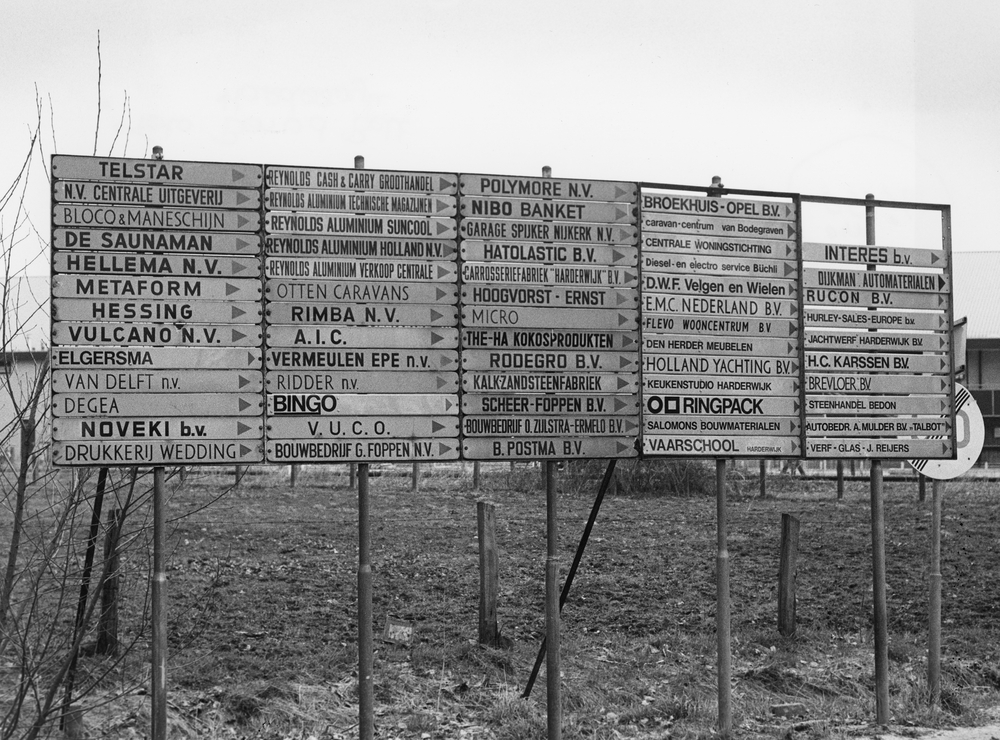 TELSTAR
N.V. CENTRALE UITGEVERIJ
BLOCQ & MANESCHIJN
DE SAUNAMAN
HELLEMA N.V.
METAFORM
HESSING
VULCANO N.V.
ELGERSMA
VAN DELFT n.v.
DEGEA
NOVEKI b.v.
DRUKKERIJ WEDDING
REYNOLDS CASH & CARRY GROOTHANDEL
REYNOLDS ALUMINIUM TECHNISCHE MAGAZIJNEN
REYNOLDS ALUMINIUM SUNCOOL
REYNOLDS ALUMINIUM HOLLAND N.V.
REYNOLDS ALUMINIUM VERKOOP CENTRALE
OTTEN CARAVANS
RIMBA N.V.
A.I.C.
VERMEULEN EPE n.v.
RIDDER n.v.
BINGO
V.U.C.O.
BOUWBEDRIJF G. FOPPEN N.V.
POLYMORE N.V.
NIBO BANKET
GARAGE SPIJKER NIJKERK N.V.
HATOLASTIC B.V.
CARROSSERIEFABRIEK "HARDERWIJK" B.V.
HOOGVORST - ERNST
MICRO
THE-HA KOKOSPRODUKTEN
RODEGRO B.V.
KALKZANDSTEENFABRIEK
SCHEER-FOPPEN B.V.
BOUWBEDRIJF O. ZIJLSTRA-ERMELO B.V.
B. POSTMA B.V.
BROEKHUIS-OPEL B.V.
caravan-centrum van Bodegraven
CENTRALE WONINGSTICHTING
Diesel- en electro service Büchli
D.W.F. Velgen en Wielen
E.M.C. NEDERLAND B.V.
FLEVO WOONCENTRUM B.V.
DEN HERDER MEUBELEN
HOLLAND YACHTING B.V.
KEUKENSTUDIO HARDERWIJK
RINGPACK
SALOMONS BOUWMATERIALEN
VAARSCHOOL HARDERWIJK
INTERES b.v.
DIJKMAN AUTOMATERIALEN
RUCON B.V.
HURLEY-SALES-EUROPE b.v.
JACHTWERF HARDERWIJK B.V.
H.C. KARSSEN B.V.
BREVLOER B.V.
STEENHANDEL BEDON
AUTOBEDR. A. MULDER B.V. "TALBOT"
VERF - GLAS - J. REIJERS